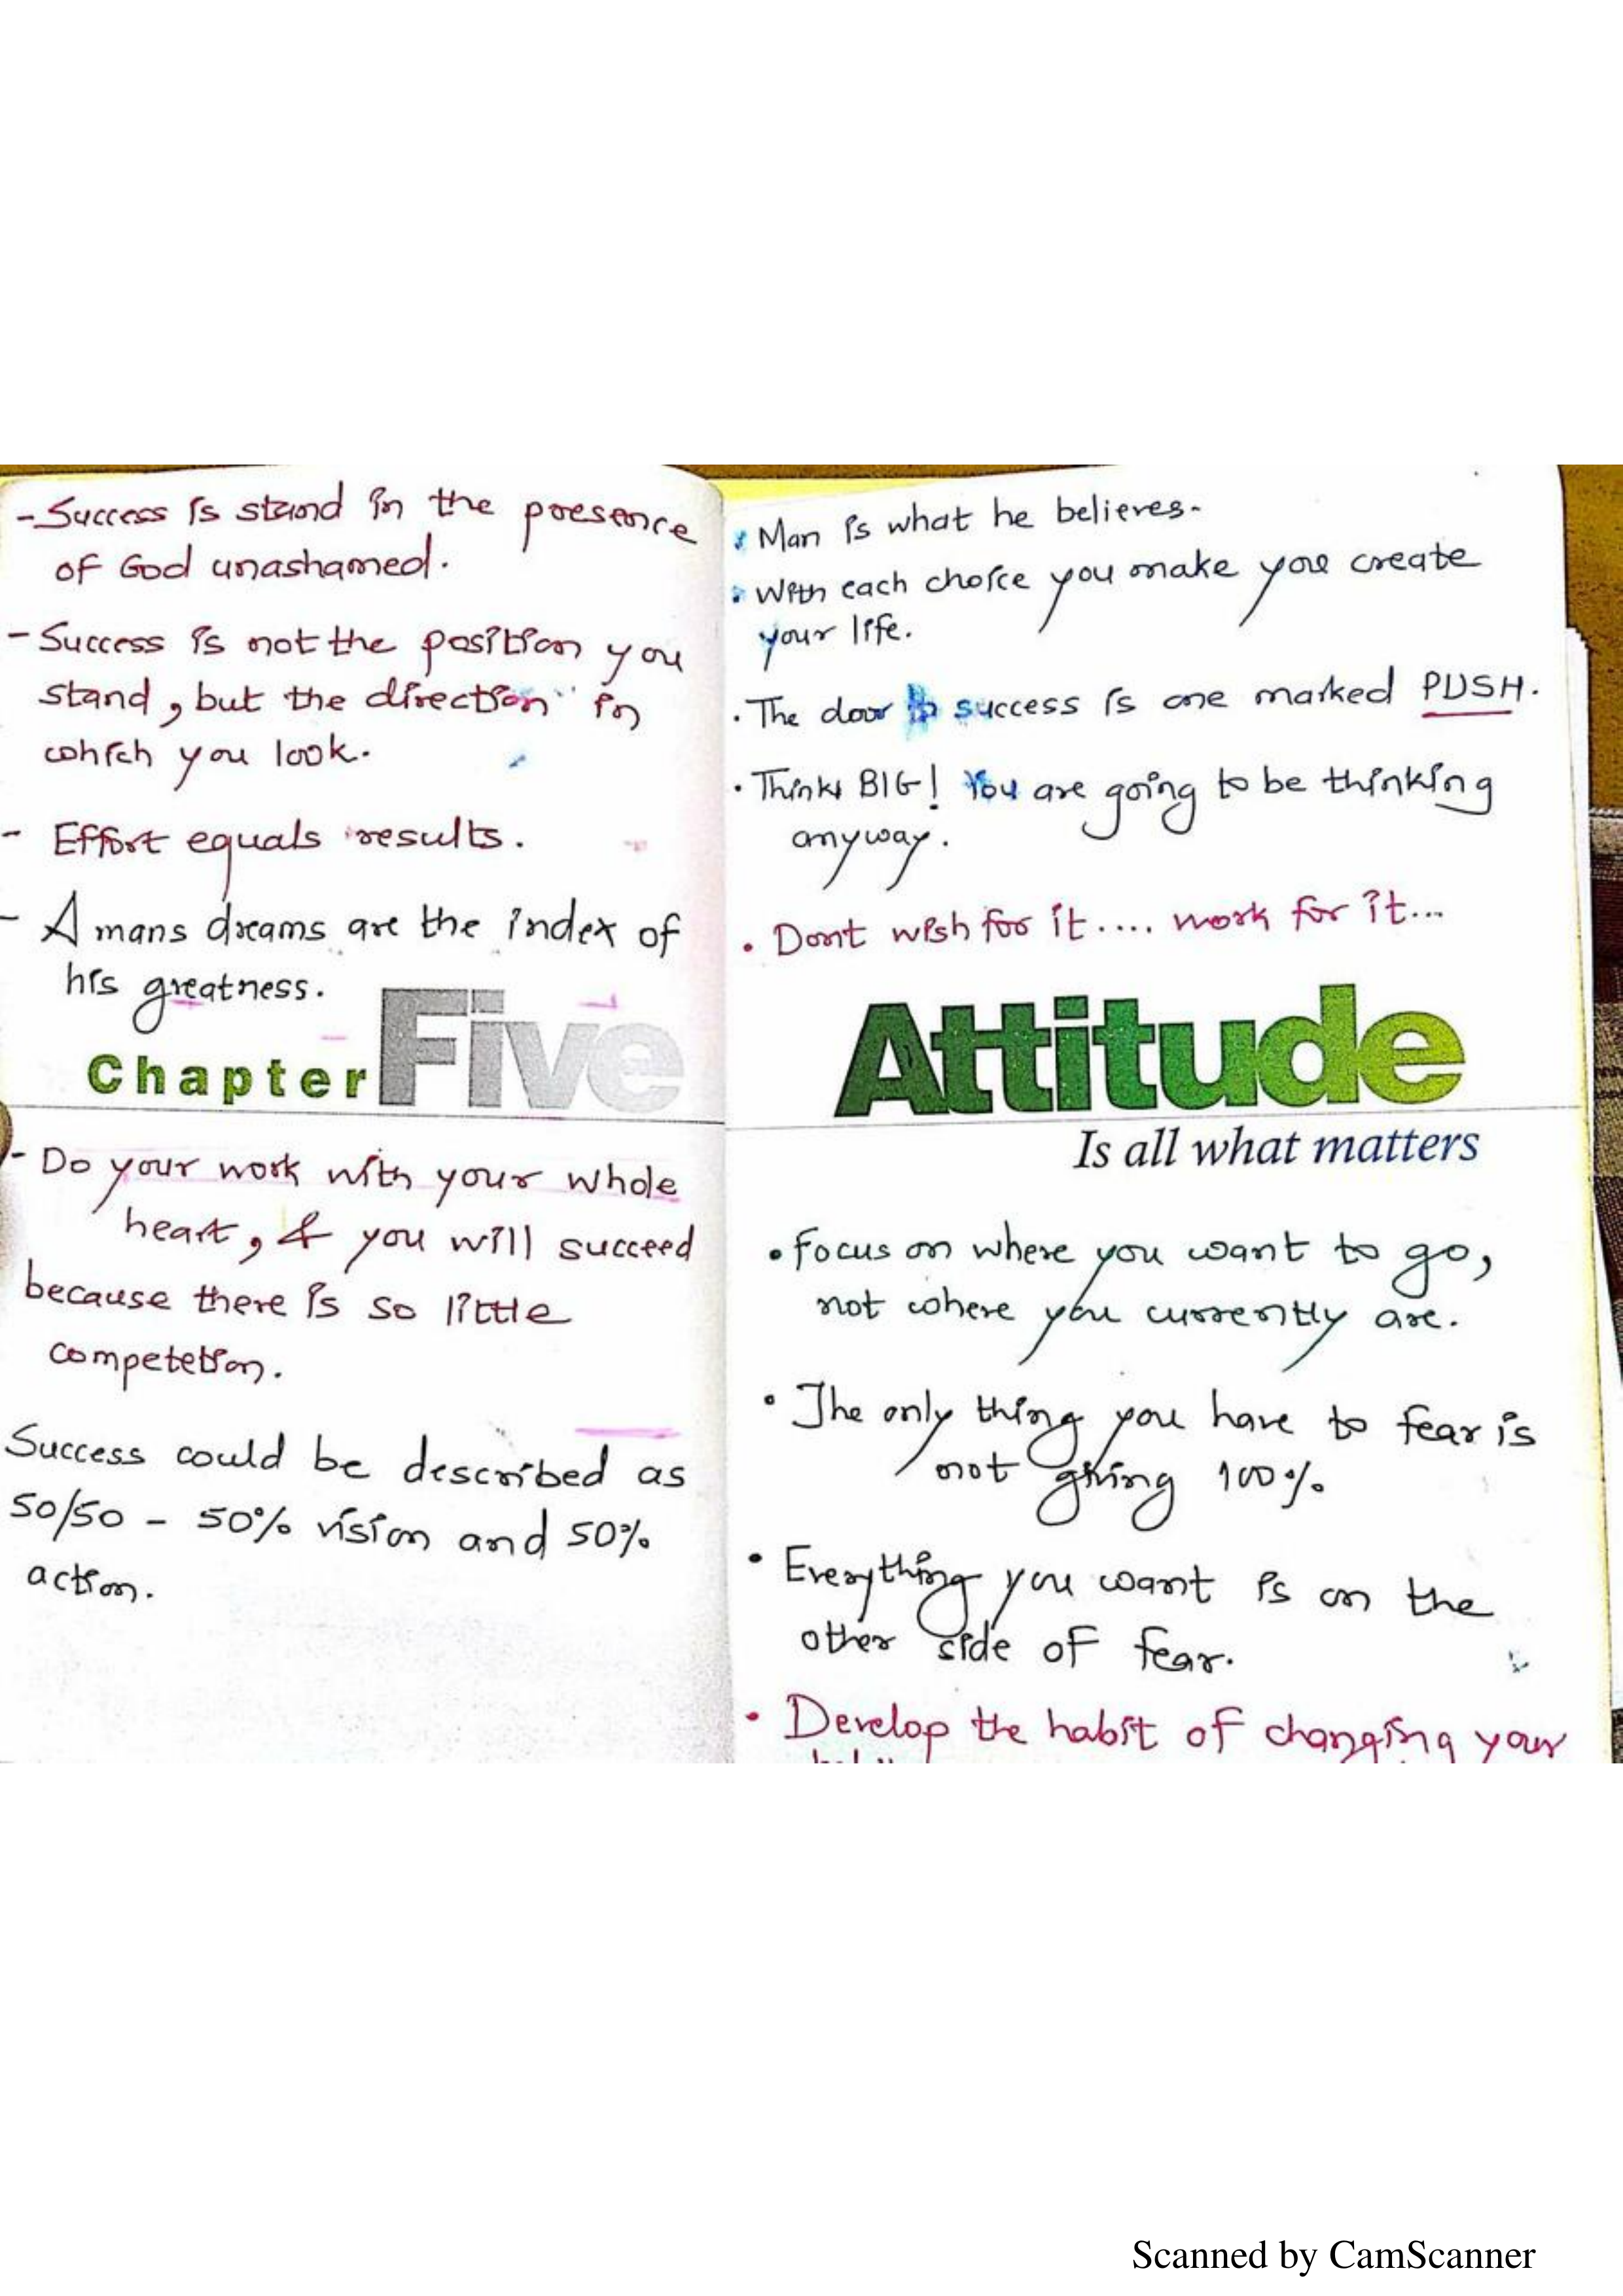 -Success is stand in the presence
of God unashamed.
- Success is not the position you
stand, but the direction in
which you look.
- Effort equals results.
- A mans dreams are the index of
his greatness.
Chapter Five
- Do your work with your whole
heart, & you will succeed
because there is so little
competetion.
Success could be described as
50/50 - 50% vision and 50%
action.
• Man is what he believes.
• With each choice you make you create
your life.
• The door to success is one marked PUSH.
• Think BIG! You are going to be thinking
anyway.
• Dont wish for it.... work for it...
Attitude
Is all what matters
• Focus on where you want to go,
not where you currently are.
• The only thing you have to fear is
not giving 100%.
• Everything you want is on the
other side of fear.
• Develop the habit of changing your
Scanned by CamScanner